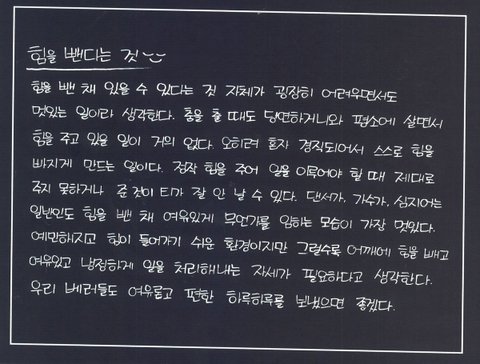 힘을 뺀다는 것
힘을 뺀 채 있을 수 있다는 것 자체가 굉장히 어려우면서도
멋있는 일이라 생각한다. 춤을 출 때도 당연하거니와 평소에 살면서
힘을 주고 있을 일이 거의 없다. 오히려 혼자 경직되어서 스스로 힘을
빠지게 만드는 일이다. 정작 힘을 주어 일을 이루어야 할 때 제대로
주지 못하거나 준 것이 티가 잘 안 날 수 있다. 댄서가, 가수가, 심지어는
일반인도 힘을 뺀 채 여유있게 무언가를 임하는 모습이 가장 멋있다.
예민해지고 힘이 들어가기 쉬운 환경이지만 그럴수록 어깨에 힘을 빼고
여유있고 냉정하게 일을 처리해내는 자세가 필요하다고 생각한다.
우리 베러들도 여유롭고 편한 하루하루를 보냈으면 좋겠다.